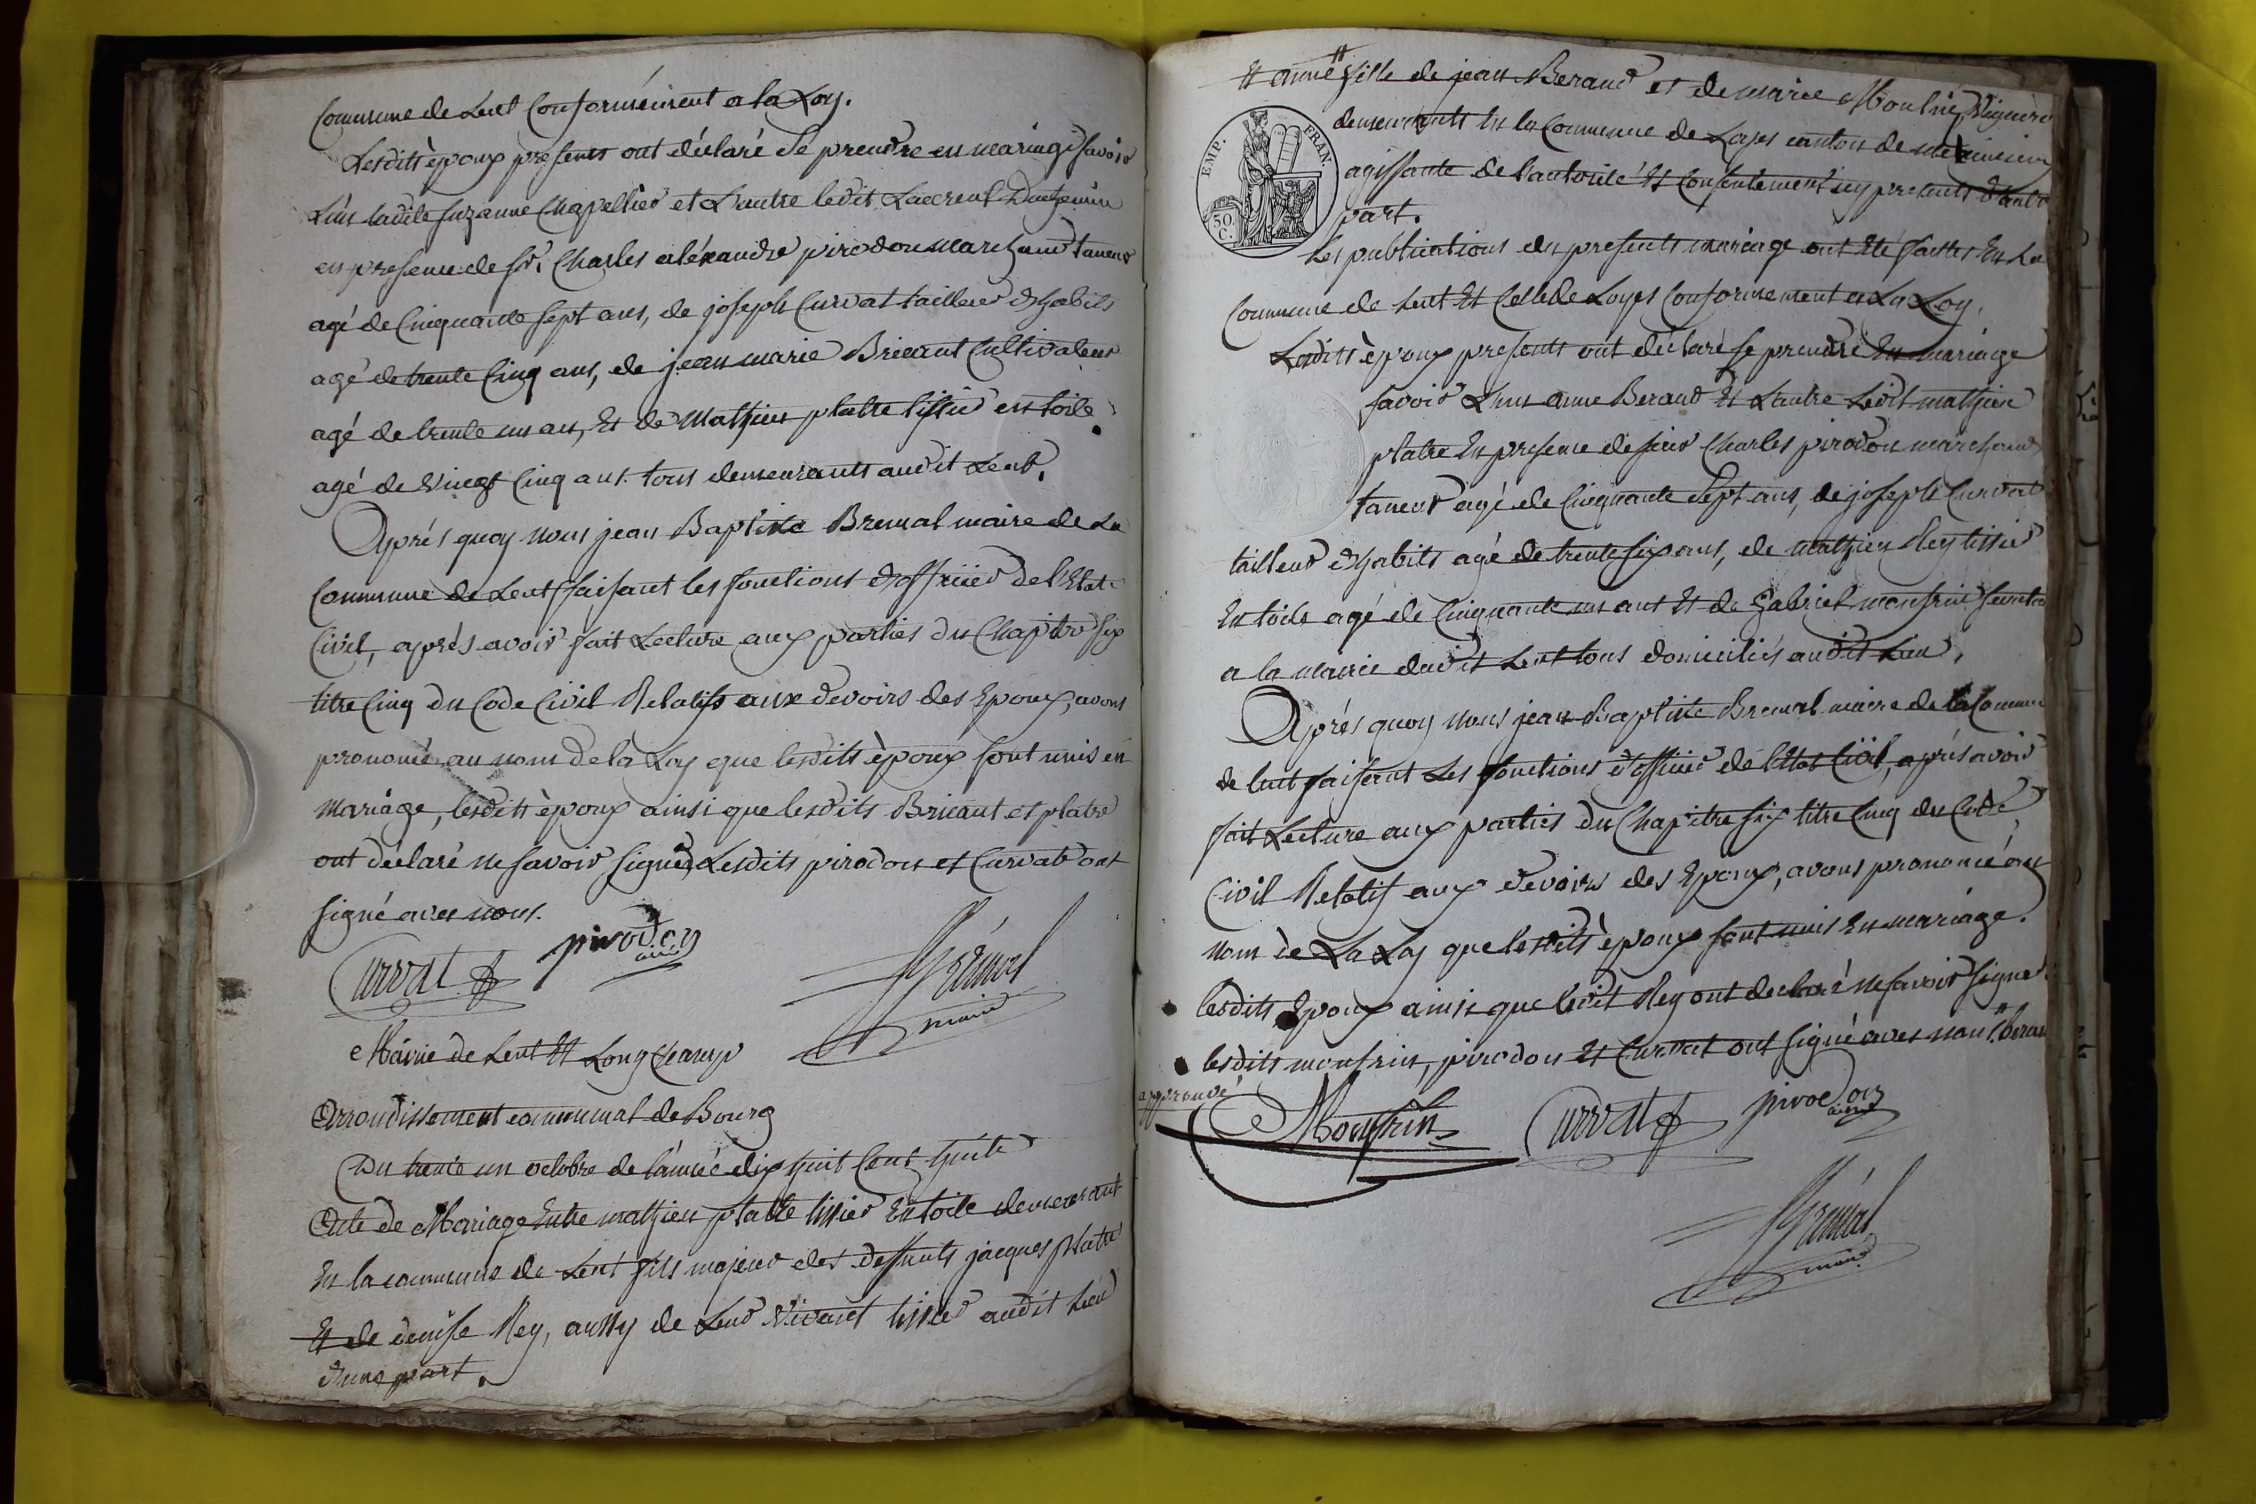 Commune de Lent Conformément a la Loy.
Lesdits époux presents ont déclaré se prendre en mariage savoir
L'un ladite suzanne Chapellier et L'autre ledit Laurent
en presence de sr. Charles aléxandre pirodon marchand taneur
agé de Cinquante sept ans, de joseph Curvat tailleur d'habits
agé de trente Cinq ans, de jean marie Bricant Cultivateur
agé de trente un an, Et de Mathieu platre tissier en toile
agé de vingt Cinq ans. tous demeurants audit Lent.
Aprés quoy nous jean Baptiste Bremal maire de La
Commune de Lent faisant les fonctions d'officier de l'Etat
Civil, aprés avoir fait Lecture aux parties du Chapitre six
titre Cinq du Code Civil Relatif aux devoirs des Epoux, avons
prononcé au nom de la Loy que lesdits époux sont unis en
Mariage, lesdits époux ainsi que lesdits Bricant et platre
ont déclaré ne savoir signer, Lesdits pirodon et Curvat ont
signé avec nous.
Curvat pirodon
ainé
Brémal
maire
Mairie de Lent Et Longchamp
Arrondissement communal de Bourg
Du trente un octobre de l'année dix huit Cent huit
Acte de Mariage Entre mathieu platre tissier En toile demeurant
En la commune de Lent fils majeur des deffunts jacques platre
Et de denise Rey, aussy de Leur vivant tissier audit Lieu
d'une part.
Et anne # fille de jean Beraud et de marie Moulin, Vigneron
EMP. FRAN.
50 C.
demeurants En la Commune de Loyes canton de meximieux
agissante de l'autorité Et Consentement icy presents d'autre
part.
Les publications du present mariage ont Eté faittes En La
Commune de Lent Et Celle de Loyes Conformement a La Loy.
Lesdits époux presents ont déclaré se prendre En mariage
savoir L'une anne Beraud Et L'autre Ledit mathieu
platre En presence de sieur Charles pirodon marchand
taneur agé de Cinquante Sept ans, de joseph Curvat
tailleur d'habits agé de trente six ans, de mathieu Rey tissier
En toile agé de Cinquante un ans Et de Gabriel monfrin
a la mairie dudit Lent tous domiciliés audit Lieu.
Aprés quoy nous jean Baptiste Bremal maire de la Commune
de Lent faisant Les fonctions d'officier de l'Etat Civil, aprés avoir
fait Lecture aux parties du Chapitre six titre Cinq du Code
Civil Relatif aux devoirs des Epoux, avons prononcé au
nom de La Loy que lesdits époux sont unis En mariage.
lesdits Epoux ainsi que ledit Rey ont déclaré ne savoir signer
lesdits monfrin, pirodon Et Curvat ont signé avec nous. # Beraud
approuvé
Monfrin Curvat pirodon
ainé
Brémal
maire